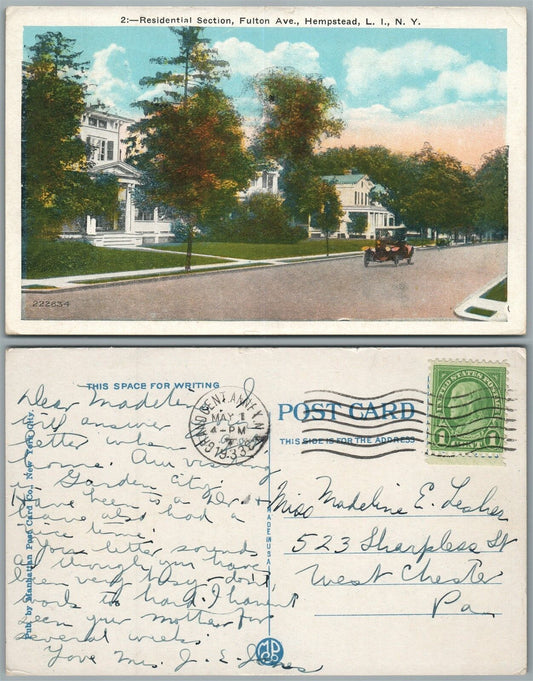 2:—Residential Section, Fulton Ave., Hempstead, L. I., N. Y.
222634
THIS SPACE FOR WRITING
Dear Madeline
Will answer
letter when I
come home. Am visiting
in Garden City.
Have been to a Dr. &
have also had a
nice time.
Your letter sounds
as though you have
been very busy - don't
work to hard. I haven't
seen your mother for
several weeks.
Love Mrs. J. E. Jones
Pub. by Manhattan Post Card Co., New York City.
MADE IN U.S.A.
GRAND CENT. ANNEX, N.Y.
MAY 1
4-PM
1933
POST CARD
THIS SIDE IS FOR THE ADDRESS
UNITED STATES POSTAGE
1 CENT 1
Miss Madeline E. Lesher
523 Sharpless St
West Chester
Pa